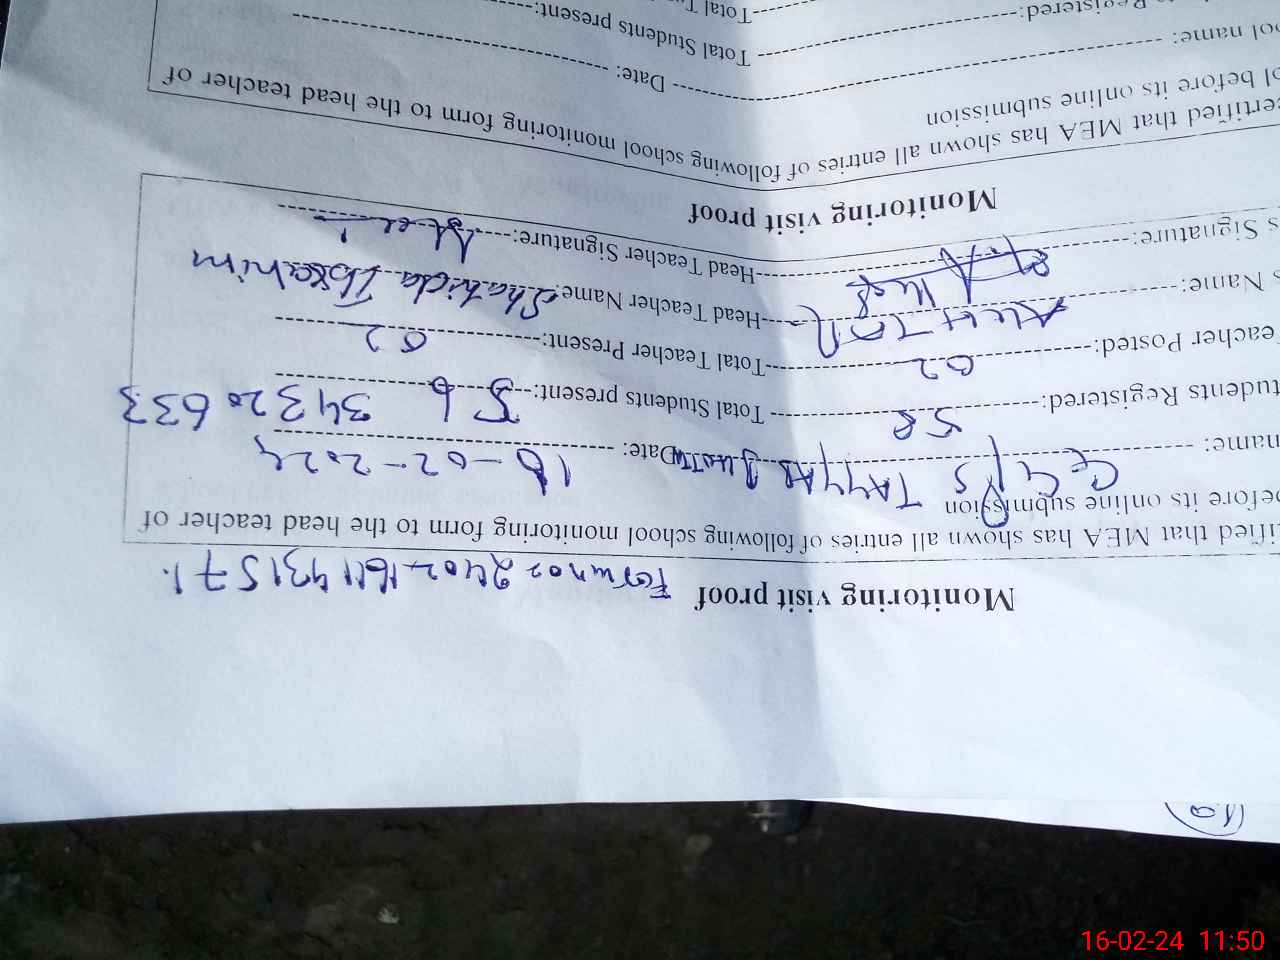 Monitoring visit proof Form no 2402-1611431571
ified that MEA has shown all entries of following school monitoring form to the head teacher of
before its online submission
name: GGPS TAYYAB Date: 16-02-2024
tudents Registered: 58 Total Students present: 56 34320633
Teacher Posted: 02 Total Teacher Present: 02
s Name: Head Teacher Name: Shahida Ibrahim
s Signature: Head Teacher Signature:
Monitoring visit proof
ertified that MEA has shown all entries of following school monitoring form to the head teacher of
ol before its online submission
ool name: Date:
Registered: Total Students present:
Total
16-02-24 11:50